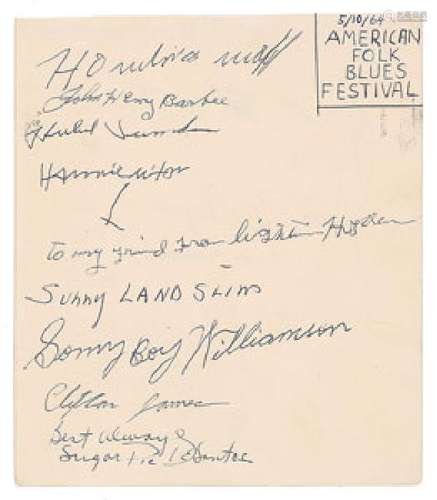 5/10/64
AMERICAN
FOLK
BLUES
FESTIVAL
John Henry Barbee
Hubert
to my friend from lightnin Hopkin
Sunny LAND SLIM
Sonny Boy Williamson
Clifton James
Best Always
Sugar Pie DeSantos